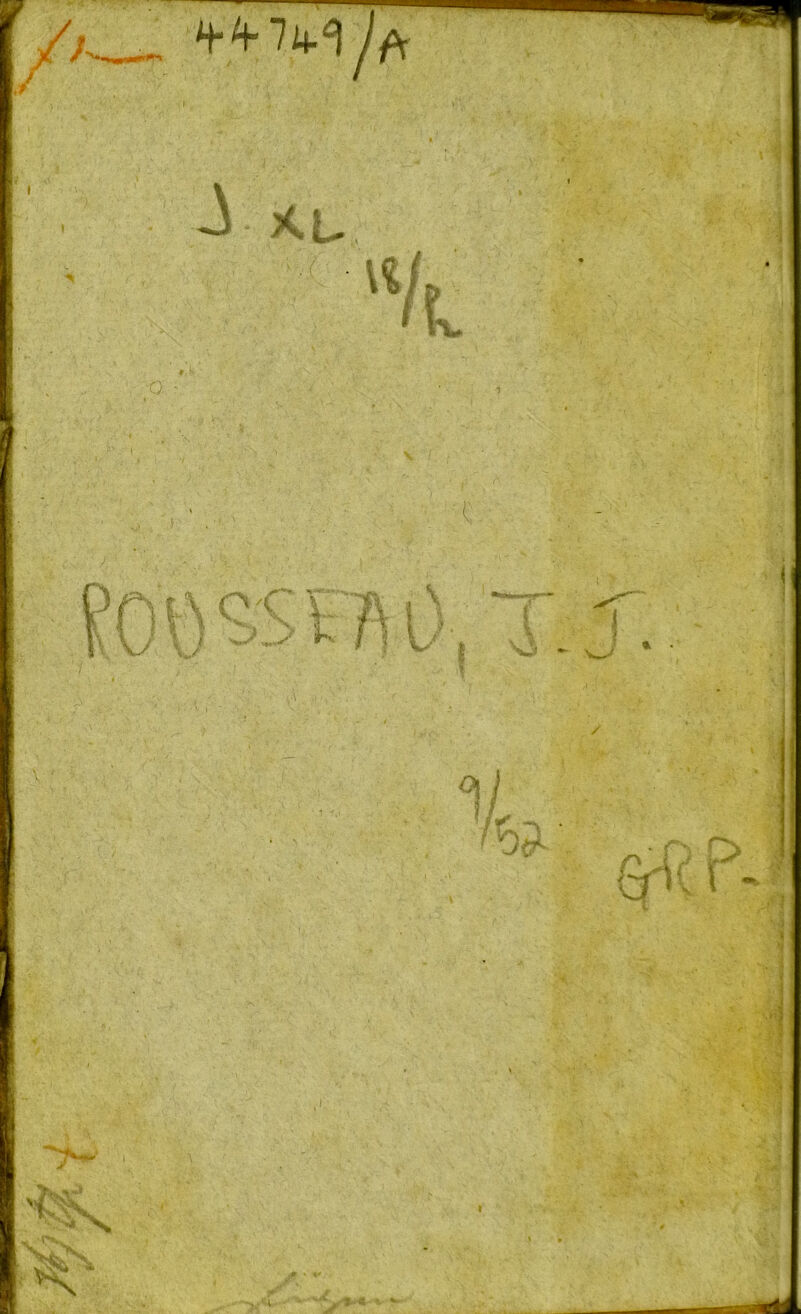 44749/A
J. XL
18/R
ROUSSEAU, J.J.
9/52
GRP.